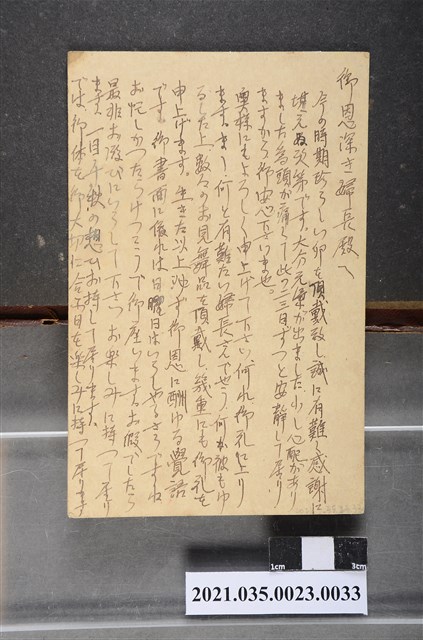 御恩深き婦長殿へ
今の時期珍らしい卵を頂戴致し誠に有難く感謝に
堪えぬ次第です。大分元気が出ました。少し心配があり
ましたる為頭が痛くて此の二三日ずっと安静して居り
ますから御安心下さいませ。
奥様にもよろしく申上げて下さい。何れ御礼に上り
ます。まあ何と有難たい婦長さんでせう。何から何もゆ
るした上数々のお見舞品を頂戴し幾重にも御礼を
申上げます。生きた以上必ず御恩に酬ゆる覚語
です。御書面に依れば日曜日はいらっしやるさうですね
お忙しかったらけっこうで御座いますお暇でしたら
最非お遊びにいらして下さい お楽しみに待って居り
ます。一日千秋の想ひお持して居ります。
では御休を御大切に 会ふ日を楽しみに待って居ります
1cm 3cm
2021.035.0023.0033